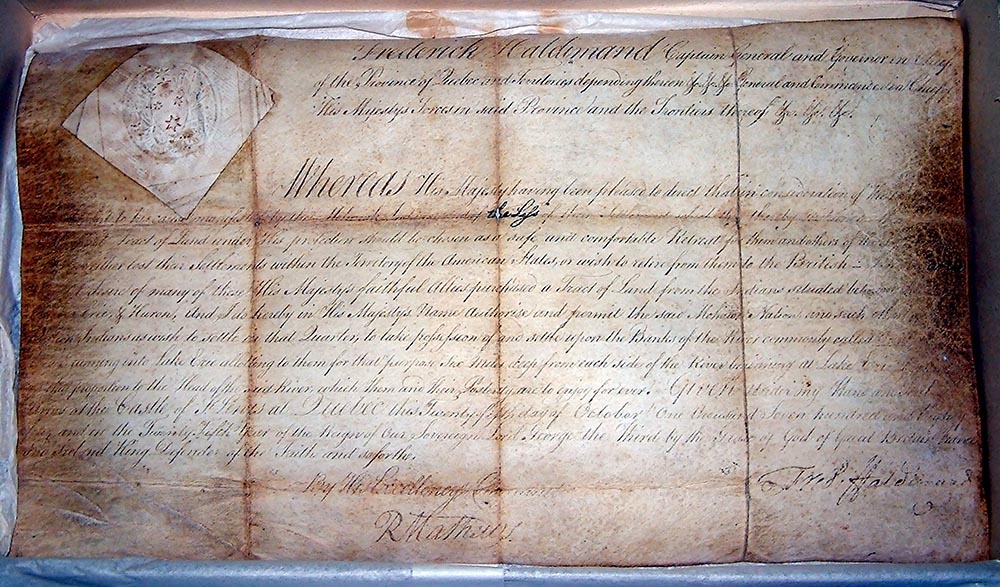 Frederick Haldimand Captain General and Governor in Chief
of the Province of Quebec and Territories depending thereon &c. &c. &c. General and Commander in Chief
His Majesty's Forces in said Province and the Frontiers thereof &c. &c. &c.
Whereas His Majesty having been pleased to direct that in consideration of the
to his cause manifested by the Mohawk Indians & of the Loss of their Settlement which they thereby sustained
Tract of Land under His protection should be chosen as a safe and comfortable Retreat for them and others of the
either lost their Settlements within the Territory of the American States, or wish to retire from them to the British
desire of many of these His Majesty's faithful Allies purchased a Tract of Land from the Indians situated between
& Huron, And I do hereby in His Majesty's Name Authorise and permit the said Mohawk Nation and such other
Indians as wish to settle in that Quarter, to take possession of and settle upon the Banks of the River commonly called
running into Lake Erie allotting to them for that purpose Six Miles deep from each side of the River beginning at Lake Erie
proportion to the Head of the said River, which them and their Posterity are to enjoy for ever. Given under my Hand and
at the Castle of St Lewis at Quebec this Twenty fifth day of October One thousand Seven hundred and Eighty
and in the Twenty Fifth Year of the Reign of Our Sovereign Lord George the Third by the Grace of God of Great Britain France
and Ireland King Defender of the Faith and so forth.
Fred: Haldimand
By His Excellency's Command
R Mathews